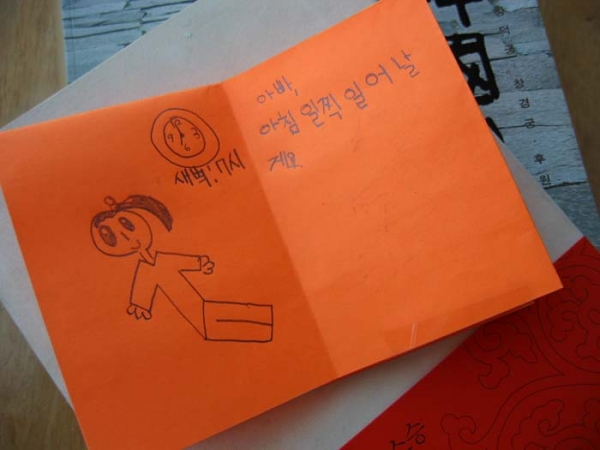 12
3
6
9
새벽:7시
아빠,
아침 일찍 일어날
게요.
창경궁·후원